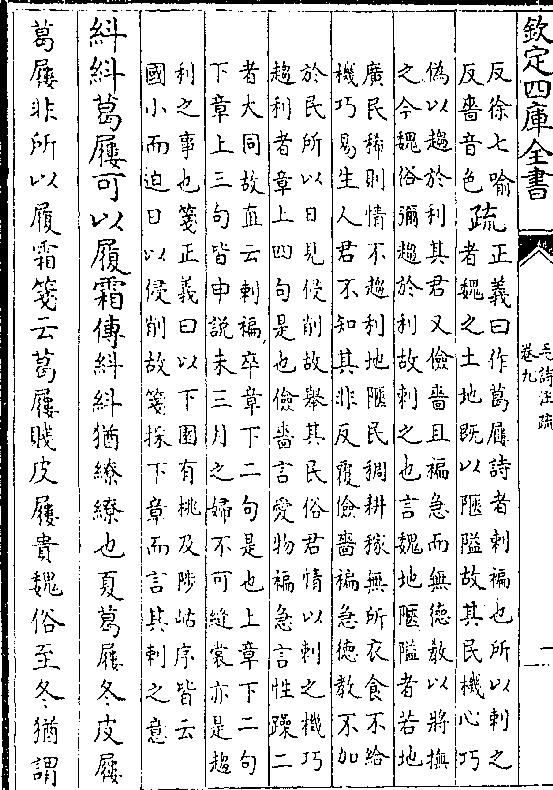 欽定四庫全書
毛詩注疏
卷九
一
反徐七喻
反嗇音色
疏
正義曰作葛屨詩者刺褊也所以刺之
者魏之土地既以陿隘故其民機心巧
偽以趨於利其君又儉嗇且褊急而無德教以將撫
之今魏俗彌趨於利故刺之也言魏地陿隘者若地
廣民稀則情不趨利地陿民稠耕稼無所衣食不給
機巧易生人君不知其非反覆儉嗇褊急德教不加
於民所以日見侵削故舉其民俗君情以刺之機巧
趨利者章上四句是也儉嗇言愛物褊急言性躁二
者大同故直云刺褊卒章下二句是也上章下二句
下章上三句皆申說未三月之婦不可縫裳亦是趨
利之事也箋正義曰以下園有桃及陟岵序皆云
國小而迫日以侵削故箋採下章而言其刺之意
糾糾葛屨可以履霜傳糾糾猶繚繚也夏葛屨冬皮屨
葛屨非所以履霜箋云葛屨賤皮屨貴魏俗至冬猶謂